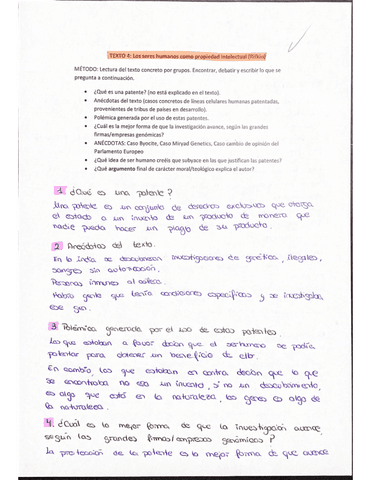 TEXTO 4: Los seres humanos como propiedad intelectual (Rifkin)
MÉTODO: Lectura del texto concreto por grupos. Encontrar, debatir y escribir lo que se
pregunta a continuación.
• ¿Qué es una patente? (no está explicado en el texto).
• Anécdotas del texto (casos concretos de líneas celulares humanas patentadas,
provenientes de tribus de países en desarrollo).
• Polémica generada por el uso de estas patentes.
• ¿Cuál es la mejor forma de que la investigación avance, según las grandes
firmas/empresas genómicas?
• ANÉCDOTAS: Caso Byocite, Caso Miryad Genetics, Caso cambio de opinión del
Parlamento Europeo
• ¿Qué idea de ser humano creéis que subyace en las que justifican las patentes?
• ¿Qué argumento final de carácter moral/teológico explica el autor?
1. ¿Qué es una patente?
Una patente es un conjunto de derechos exclusivos que otorga
el estado a un invento de un producto de manera que
nadie pueda hacer un plagio de su producto.
2. Anécdotas del texto.
En la India se descubrieron investigaciones de genética, ilegales,
sangres sin autorización.
Personas inmunes al asma.
Había gente que tenía condiciones específicas y se investigaba
ese gen.
3. Polémica generada por el uso de estas patentes.
Los que estaban a favor decían que el ser humano se podía
patentar para obtener un beneficio de ello.
En cambio, los que estaban en contra decían que lo que
se encontraba no era un invento, si no un descubrimiento,
es algo que está en la naturaleza, los genes es algo de
la naturaleza.
4. ¿Cuál es la mejor forma de que la investigación avance,
según las grandes firmas/empresas genómicas?
La protección de la patente es la mejor forma de que avance